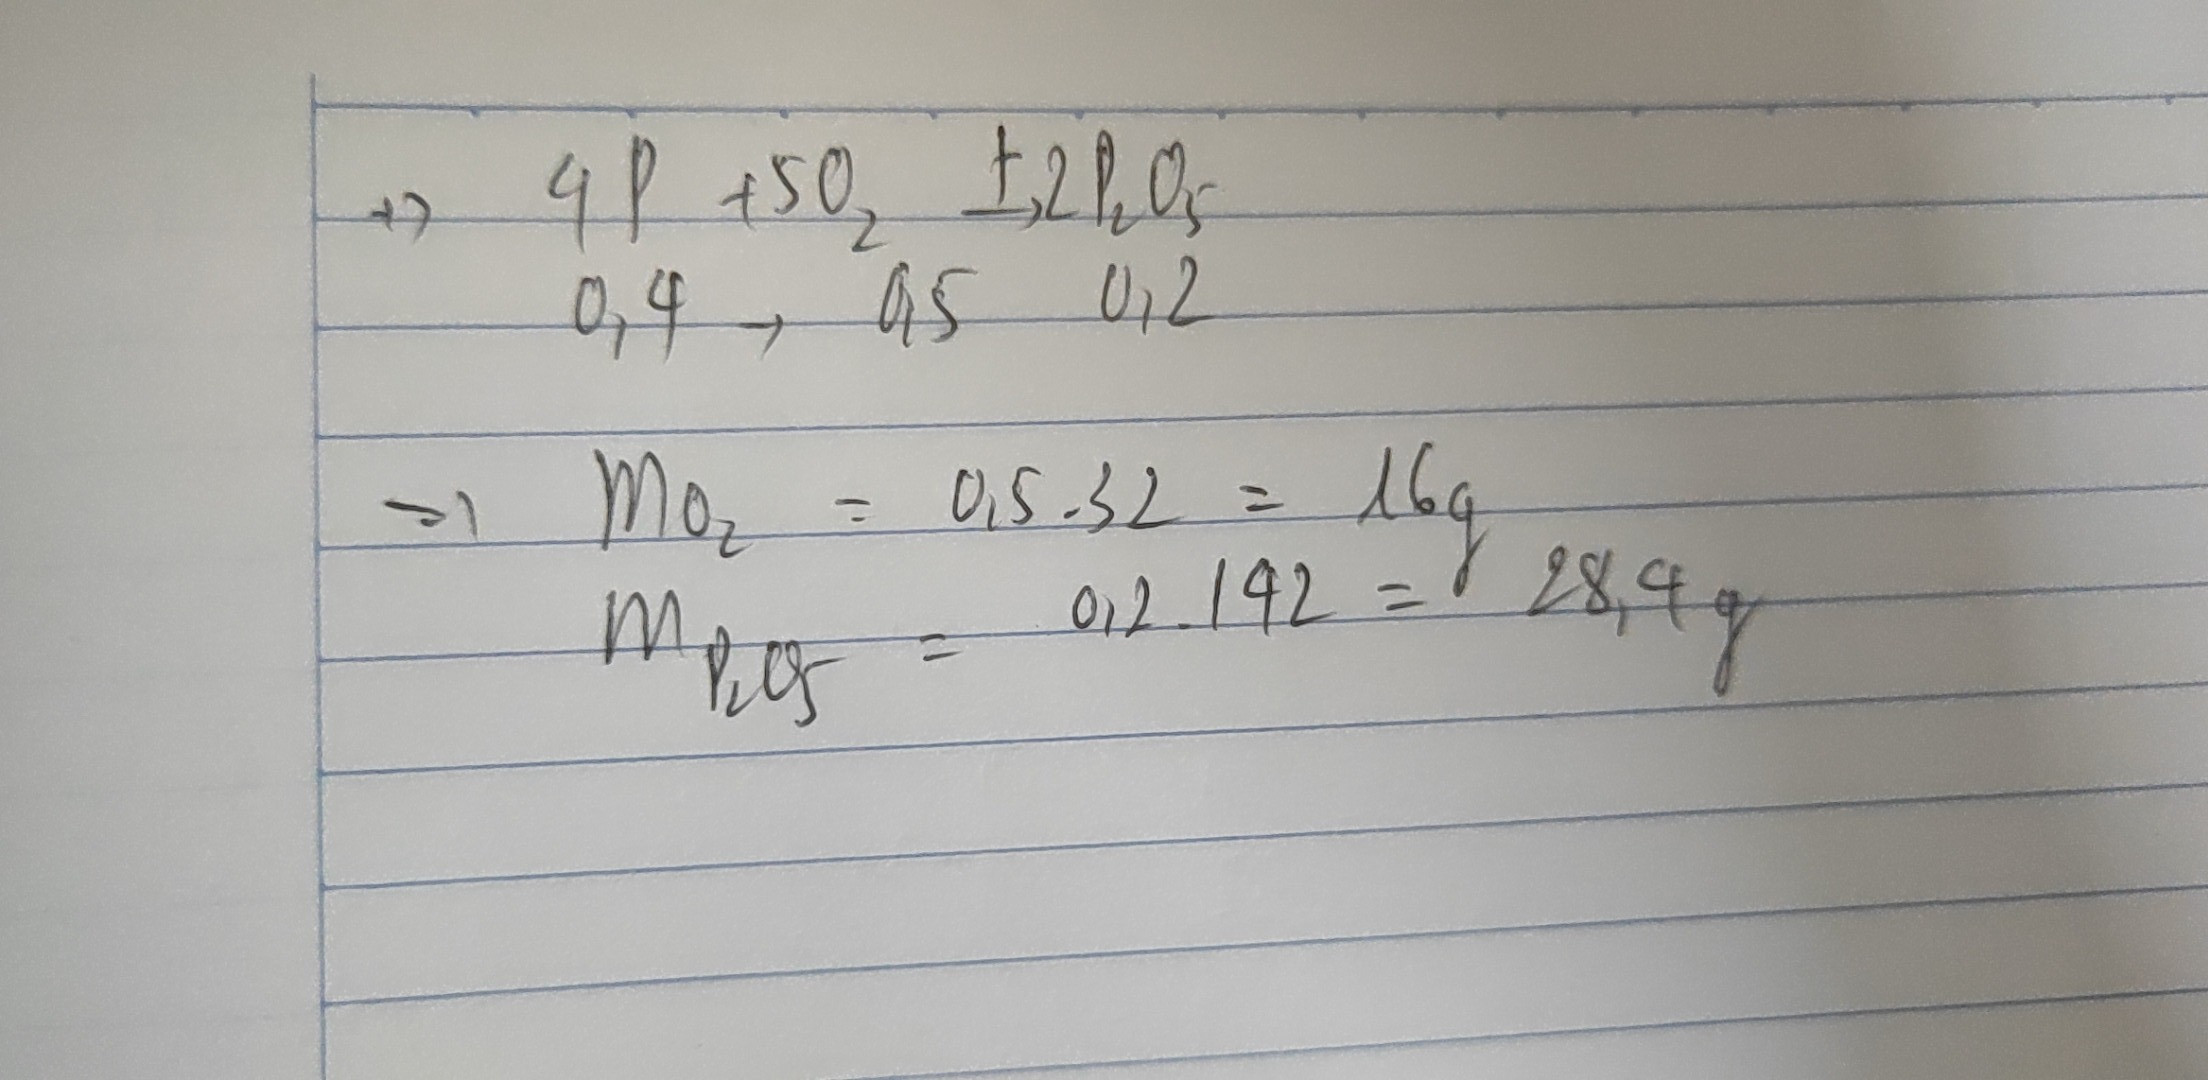 +) 4P + 5O₂ →(t) 2P₂O₅
0,4 → 0,5 0,2
=) mO₂ = 0,5.32 = 16g
mP₂O₅ = 0,2.142 = 28,4g